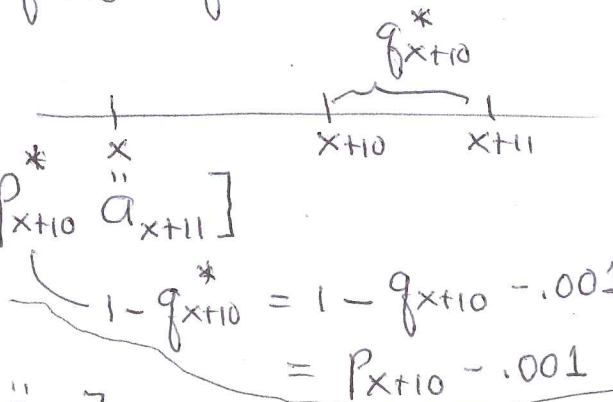 q*x+10
x x+10 x+11
p*x+10 äx+11]
1 - q*x+10 = 1 - qx+10 - .001
= px+10 - .001